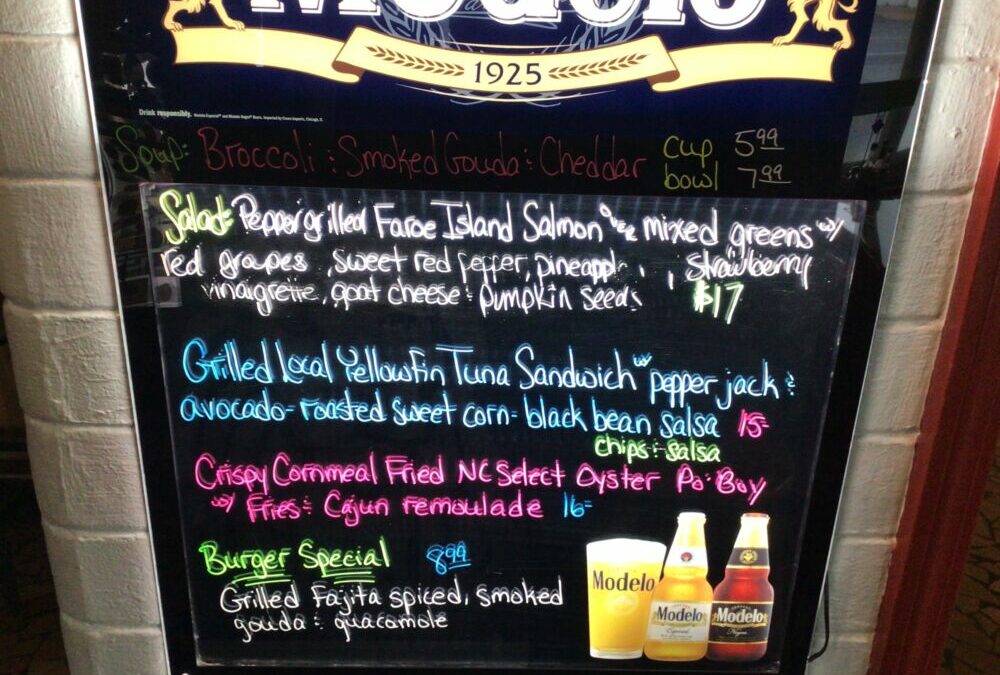 Modelo
1925
Drink responsibly.
Soup: Broccoli & Smoked Gouda & Cheddar cup 5.99
bowl 7.99
Salad: Peppergrilled Faroe Island Salmon over mixed greens w/
red grapes, sweet red pepper, pineapple, strawberry
vinaigrette, goat cheese & pumpkin seeds $17
Grilled Local Yellowfin Tuna Sandwich w/ pepper jack &
avocado-roasted sweet corn-black bean salsa 15-
chips & salsa
Crispy Cornmeal Fried NC Select Oyster Po-Boy
w/ Fries & Cajun remoulade 16-
Burger Special 8.99
Grilled Fajita spiced, smoked
gouda & guacamole
Modelo
Modelo
Especial
Modelo
Negra